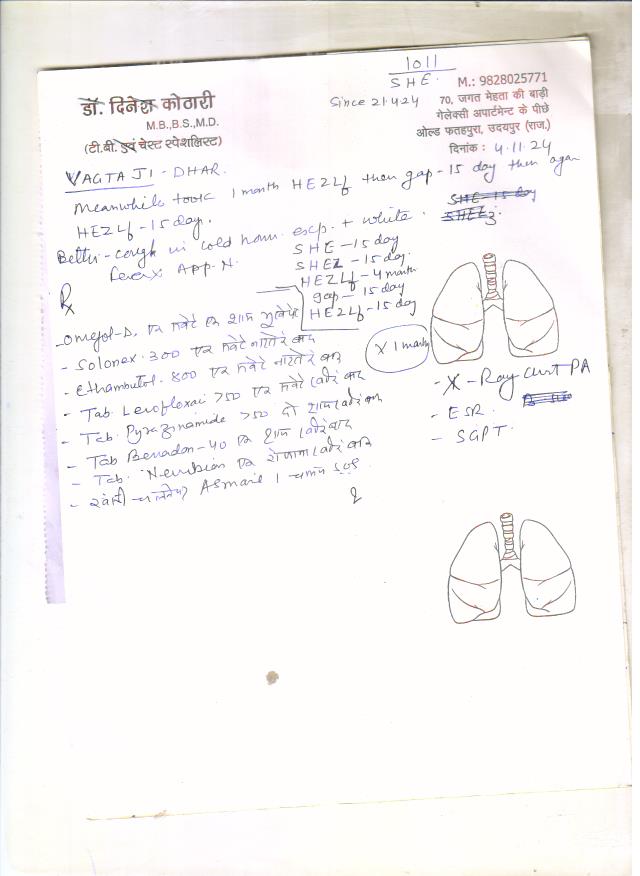 1011
SHE.
Since 21.4.24
M.: 9828025771
70, जगत मेहता की बाड़ी
गेलेक्सी अपार्टमेन्ट के पीछे
ओल्ड फतहपुरा, उदयपुर (राज.)
दिनांक : 4.11.24
डॉ. दिनेश कोठारी
M.B.,B.S.,M.D.
(टी.बी. एवं चेस्ट स्पेशलिस्ट)
VAGTA JI - DHAR.
Meanwhile took 1 month HEZLf then gap - 15 day then again
HEZLf - 15 day.
SHE - 15 day
SHEZ
Better - cough in cold + white.
Fever x App. N.
SHE - 15 day
SHEZ - 15 day.
HEZLf - 4 month
gap - 15 day
HEZLf - 15 day
Rx
- Omejol-D. एक शाम भूखे पेट
- Solonex. 300 एक नाश्ते के बाद
- Ethambutol. 800 एक नाश्ते के बाद
- Tab. 750 एक बाद
- Tab. Pyrazinamide 750 दो शाम बाद
- Tab Benadon - 40 एक शाम बाद
- Tab. एक रोजाना बाद
- खांसी 1 चम्मच SOS.
X 1 month
- X-Ray Chest PA
- ESR.
- SGPT.